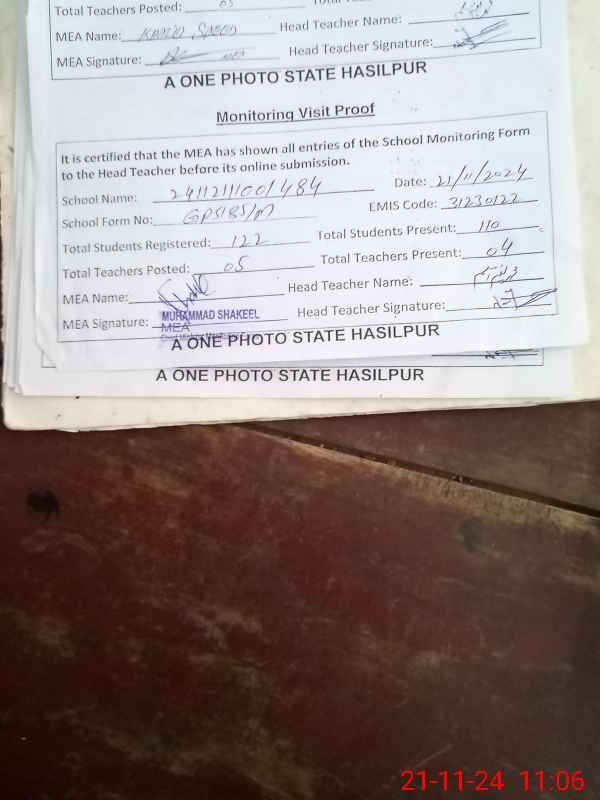 Total Teachers Posted: 05
MEA Name: KHALID SAEED Head Teacher Name:
MEA Signature: Head Teacher Signature:
A ONE PHOTO STATE HASILPUR
Monitoring Visit Proof
It is certified that the MEA has shown all entries of the School Monitoring Form
to the Head Teacher before its online submission.
School Name: 24112111001484 Date: 21/11/2024
School Form No: GPS185/M EMIS Code: 31230122
Total Students Registered: 122 Total Students Present: 110
Total Teachers Posted: 05 Total Teachers Present: 04
MEA Name: Head Teacher Name:
MEA Signature: MUHAMMAD SHAKEEL Head Teacher Signature:
MEA
A ONE PHOTO STATE HASILPUR
A ONE PHOTO STATE HASILPUR
21-11-24 11:06